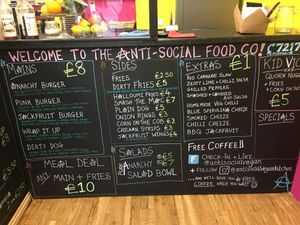 WELCOME TO THE ANTI-SOCIAL FOOD CO!
MAINS £8
ANARCHY BURGER
PUNK BURGER
JACKFRUIT BURGER
WRAP IT UP
DIRTY DOG
MEAL DEAL
ANY MAIN + FRIES
£10
SIDES
FRIES £2.50
DIRTY FRIES £5
HALLOUMI FRIES £4
SMASH THE MAC £4
PLAIN DOG £3
ONION RINGS £3
CORN ON THE COB £2
CHICKEN STRIPS £3
JACKFRUIT WINGS £4
SALADS
ANARCHY £5
SALAD BOWL
EXTRAS £1
RED CABBAGE SLAW
ZESTY LIME + CHILLI SALSA
GRILLED PEPPERS
SMASHED AVO
HOMEMADE VEG CHILLI
BLUE SPIRULINA CHEEZE
SMOKED CHEEZE
CHILLI CHEEZE
BBQ JACKFRUIT
FREE COFFEE!!
CHECK-IN + LIKE
@antisocialvegan
FOLLOW @antisocialvegankitchen
AND WE'LL GIVE YOU A FREE
COFFEE WHILE YOU WAIT
KID
QUORN NUGGETS
FRIES £5
+ CORN
ON THE
SPECIALS